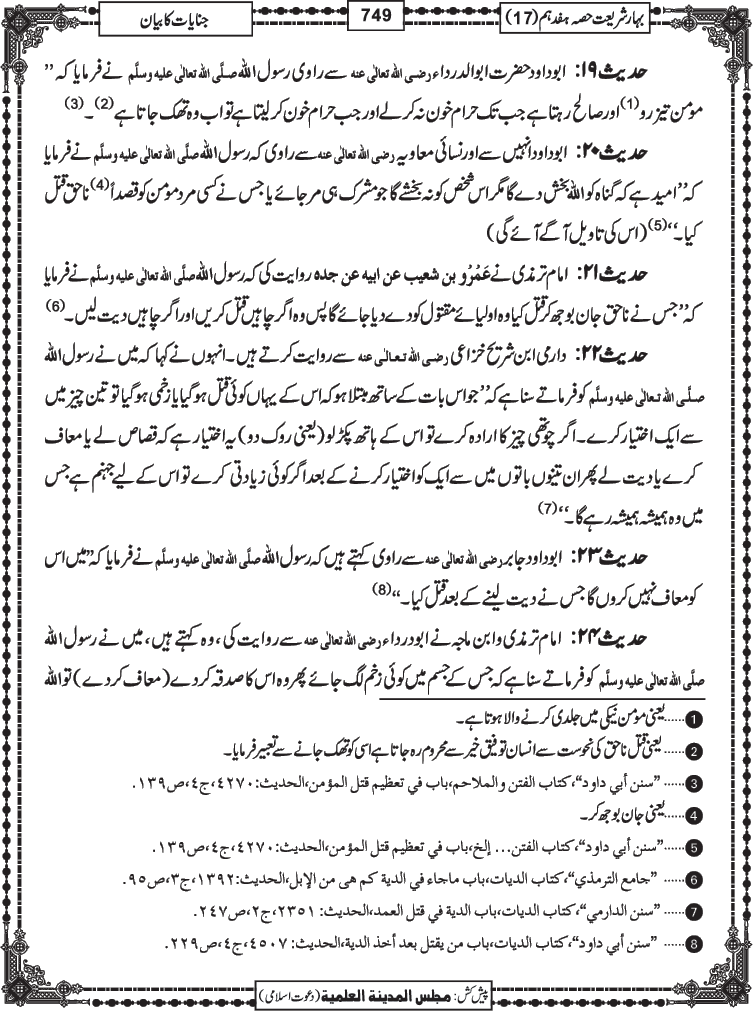 بہار شریعت حصہ ہفدہم (17)
749
جنایات کا بیان
حدیث ۱۹: ابو داود حضرت ابو الدرداء رضی اللہ تعالٰی عنہ سے راوی رسول اللہ صلَّی اللہ تعالٰی علیہ وسلَّم نے فرمایا کہ ’’
مؤمن تیز رو(1) اور صالح رہتا ہے جب تک حرام خون نہ کرلے اور جب حرام خون کر لیتا ہے تو اب وہ تھک جاتا ہے(2)۔ (3)
حدیث ۲۰: ابو داود انہیں سے اور نسائی معاویہ رضی اللہ تعالٰی عنہ سے راوی کہ رسول اللہ صلَّی اللہ تعالٰی علیہ وسلَّم نے فرمایا
کہ ’’امید ہے کہ گناہ کو اللہ بخش دے گا مگر اس شخص کو نہ بخشے گا جو مشرک ہی مر جائے یا جس نے کسی مرد مومن کو قصداً(4) ناحق قتل
کیا۔‘‘(5) (اس کی تاویل آگے آئے گی)
حدیث ۲۱: امام ترمذی نے عَمْرُو بن شعیب عن ابیہ عن جدہ روایت کی کہ رسول اللہ صلَّی اللہ تعالٰی علیہ وسلَّم نے فرمایا
کہ ’’جس نے ناحق جان بوجھ کر قتل کیا وہ اولیائے مقتول کو دے دیا جائے گا پس وہ اگر چاہیں قتل کریں اور اگر چاہیں دیت لیں۔ (6)
حدیث ۲۲: دارمی ابن شریح خزاعی رضی اللہ تعالٰی عنہ سے روایت کرتے ہیں۔ انہوں نے کہا کہ میں نے رسول اللہ
صلَّی اللہ تعالٰی علیہ وسلَّم کو فرماتے سنا ہے کہ ’’جو اس بات کے ساتھ مبتلا ہو کہ اس کے یہاں کوئی قتل ہو گیا یا زخمی ہو گیا تو تین چیز میں
سے ایک اختیار کرے۔ اگر چوتھی چیز کا ارادہ کرے تو اس کے ہاتھ پکڑ لو (یعنی روک دو) یہ اختیار ہے کہ قصاص لے یا معاف
کرے یا دیت لے پھر ان تینوں باتوں میں سے ایک کو اختیار کرنے کے بعد اگر کوئی زیادتی کرے تو اس کے لیے جہنم ہے جس
میں وہ ہمیشہ ہمیشہ رہے گا۔‘‘ (7)
حدیث ۲۳: ابو داود جابر رضی اللہ تعالٰی عنہ سے راوی کہتے ہیں کہ رسول اللہ صلَّی اللہ تعالٰی علیہ وسلَّم نے فرمایا کہ ’’میں اس
کو معاف نہیں کروں گا جس نے دیت لینے کے بعد قتل کیا۔‘‘(8)
حدیث ۲۴: امام ترمذی و ابن ماجہ نے ابو درداء رضی اللہ تعالٰی عنہ سے روایت کی، وہ کہتے ہیں، میں نے رسول اللہ
صلَّی اللہ تعالٰی علیہ وسلَّم کو فرماتے سنا ہے کہ جس کے جسم میں کوئی زخم لگ جائے پھر وہ اس کا صدقہ کردے (معاف کردے) تو اللہ
1......یعنی مؤمن نیکی میں جلدی کرنے والا ہوتا ہے۔
2......یعنی قتل ناحق کی نحوست سے انسان توفیق خیر سے محروم رہ جاتا ہے اسی کو تھک جانے سے تعبیر فرمایا۔
3......”سنن أبي داود“، کتاب الفتن والملاحم، باب في تعظیم قتل المؤمن، الحدیث: ۴۲۷۰، ج۴، ص۱۳۹.
4......یعنی جان بوجھ کر۔
5......”سنن أبي داود“، کتاب الفتن... إلخ، باب في تعظیم قتل المؤمن، الحدیث: ۴۲۷۰، ج۴، ص۱۳۹.
6......”جامع الترمذي“، کتاب الدیات، باب ماجاء في الدیة کم هی من الإبل، الحدیث: ۱۳۹۲، ج۳، ص۹۵.
7......”سنن الدارمي“، کتاب الدیات، باب الدیة في قتل العمد، الحدیث: ۲۳۵۱، ج۲، ص۲۴۷.
8......”سنن أبي داود“، کتاب الدیات، باب من یقتل بعد أخذ الدیة، الحدیث: ۴۵۰۷، ج۴، ص۲۲۹.
پیش کش: مجلس المدینۃ العلمیۃ (دعوت اسلامی)